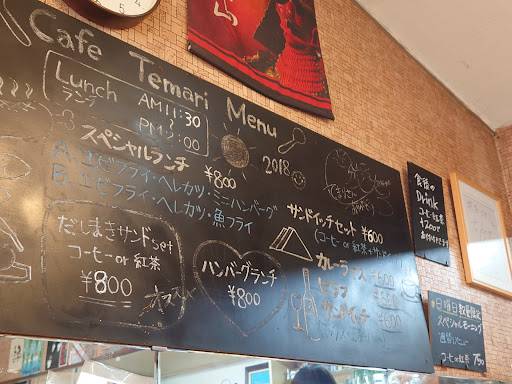 Cafe Temari Menu
Lunch
ランチ
AM 11:30
PM 2:00
スペシャルランチ ¥800
A. エビフライ・ヘレカツ・ミニハンバーグ
B. エビフライ・ヘレカツ・魚フライ
2018
だしまきサンドset
コーヒーor紅茶
¥800
オススメ
ハンバーグランチ
¥800
サンドイッチセット ¥600
(コーヒーor紅茶+サンド
カレーライス
ピラフ
サンドイッチ
食後の
Drink
コーヒー・紅茶
日曜日数量限定
スペシャルモーニング
コーヒーor紅茶 750